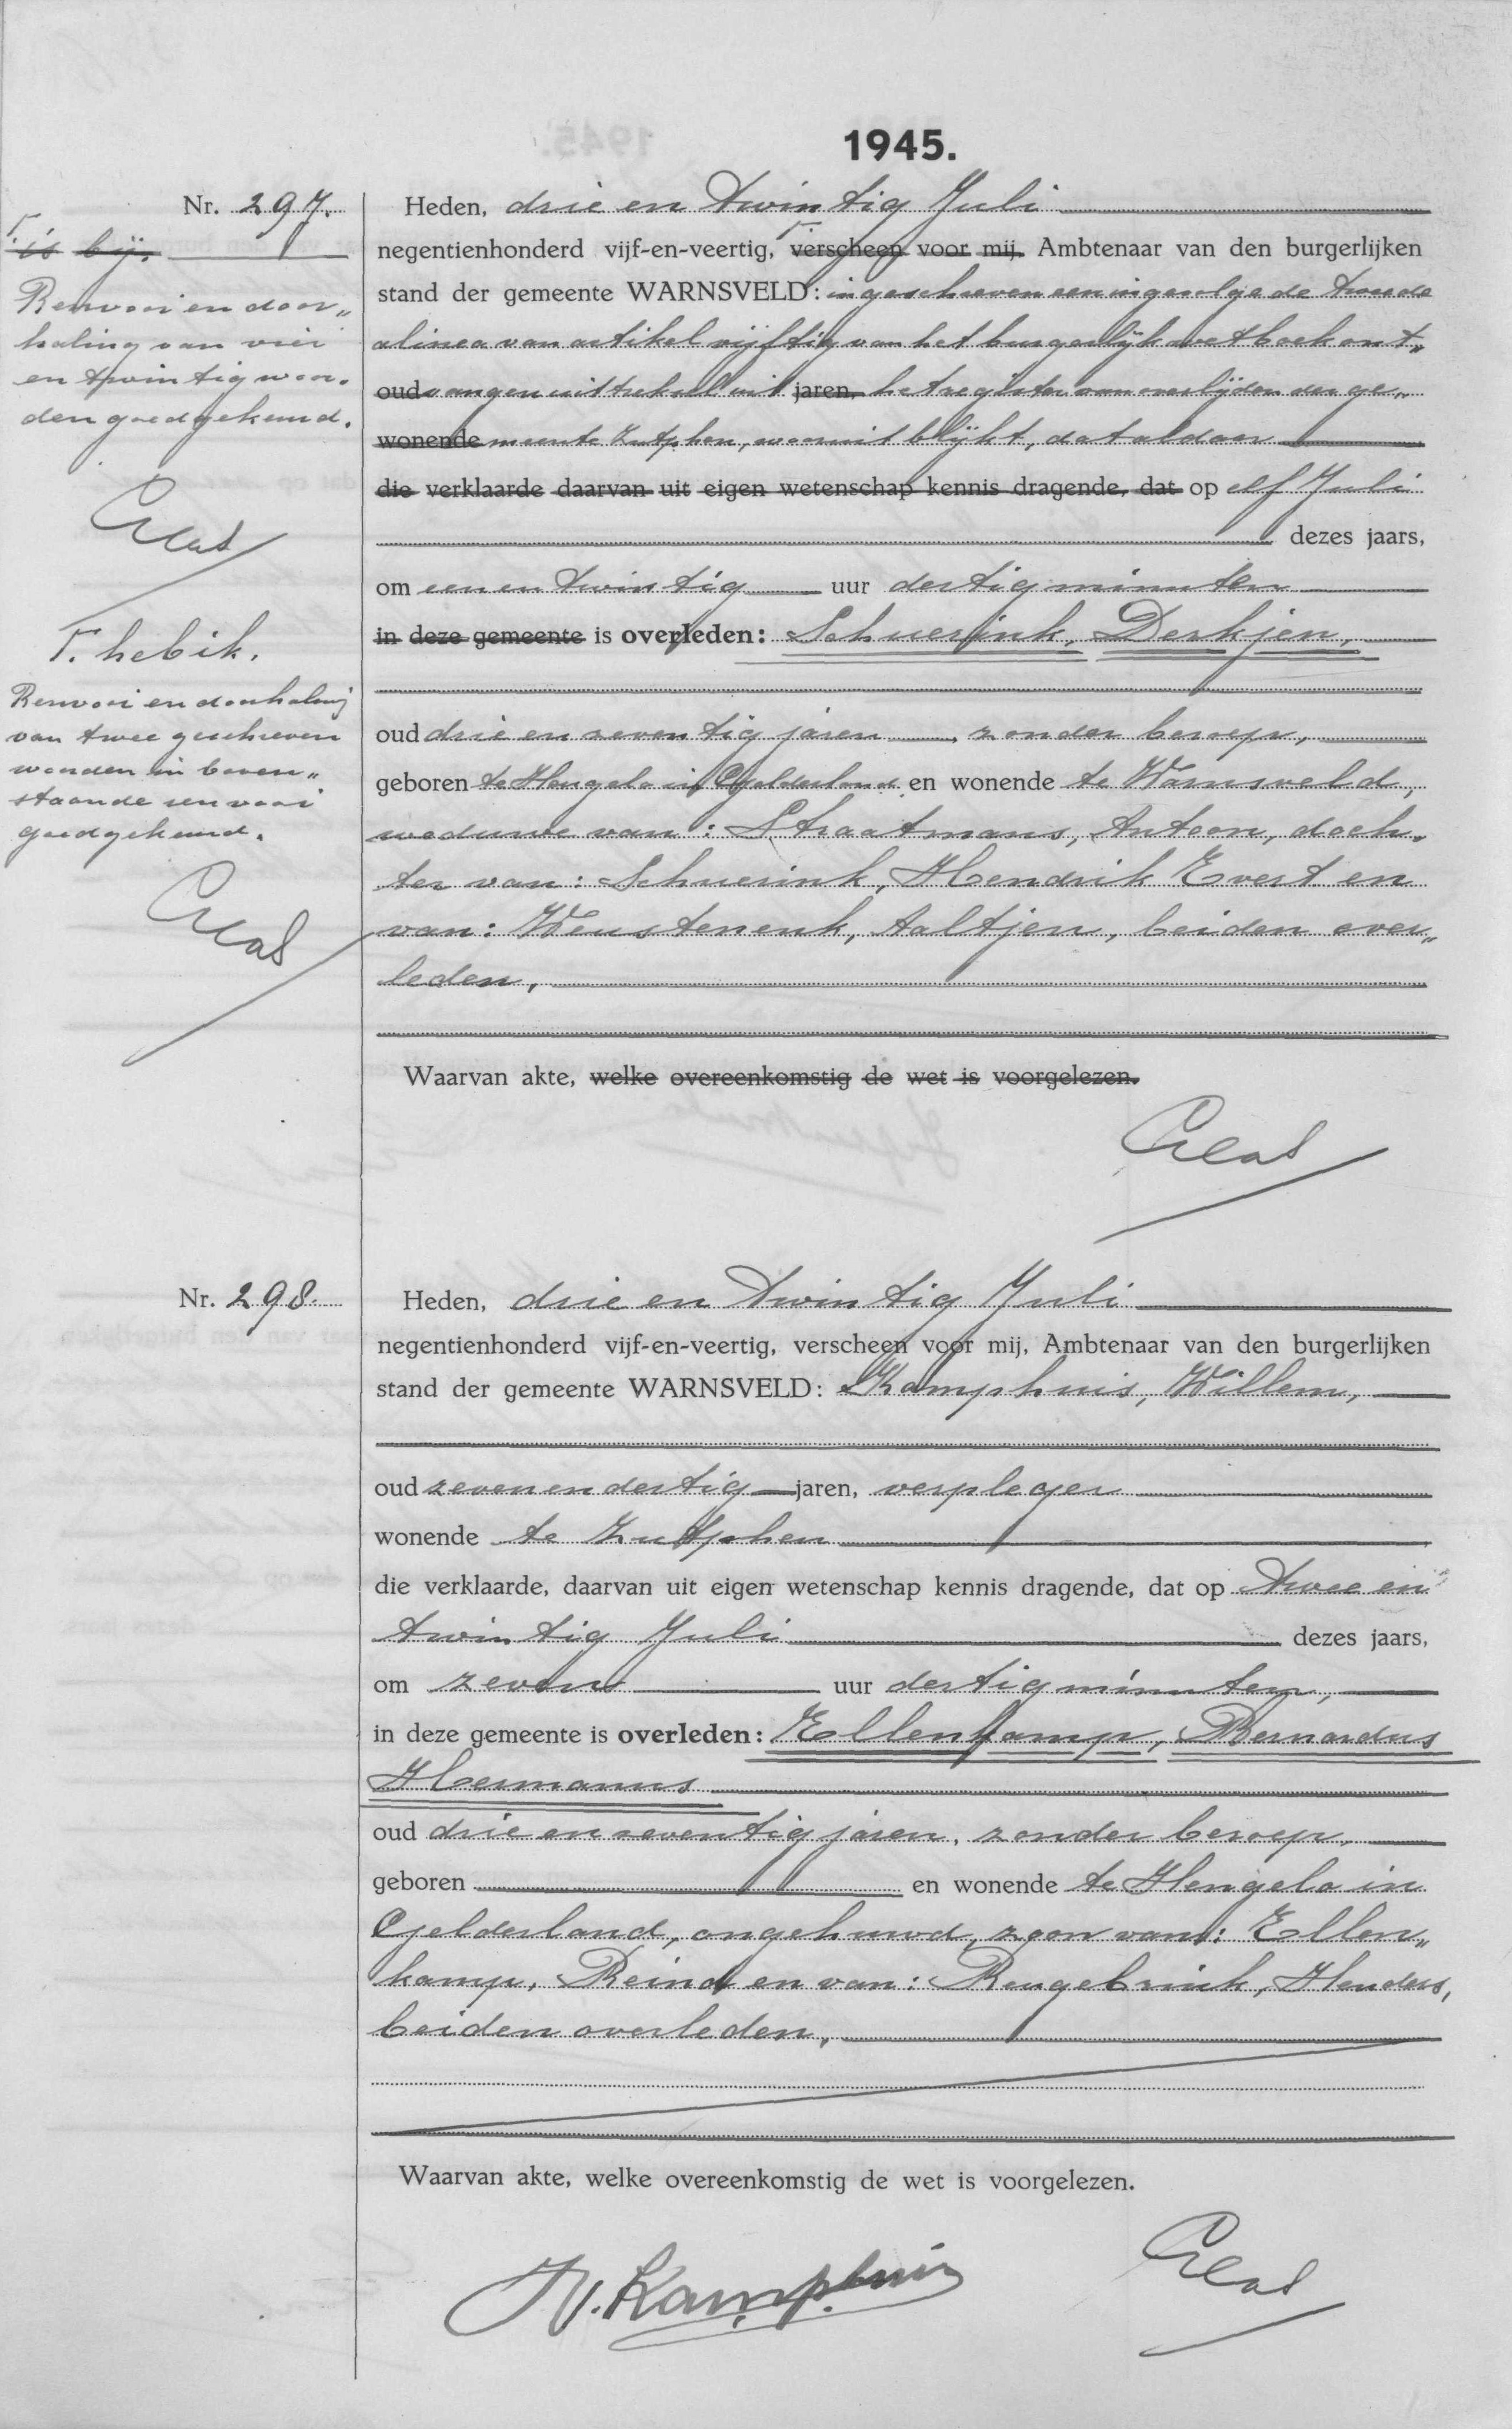 1945.
Nr. 297.
Γ. is bij.
Renvooi en door„
haling van vier
en twintig woor„
den goedgekeurd.
Γ. heb ik.
Renvooi en doorhaling
van twee geschreven
woorden in boven„
staande renvooi
goedgekeurd.
Heden, drie en twintig Juli
negentienhonderd vijf-en-veertig, Γ. verscheen voor mij, Ambtenaar van den burgerlijken
stand der gemeente WARNSVELD: ingeschreven een ingevolge de tweede
alinea van artikel vijftig van het burgerlijk wetboek ont„
oud vangen uittreksel uit jaren, het register van overlijden der ge„
wonende meente Zutphen, waaruit blijkt, dat aldaar
die verklaarde daarvan uit eigen wetenschap kennis dragende, dat op elf Juli
dezes jaars,
om een en twintig uur dertig minuten
in deze gemeente is overleden: Schuerink, Derkjen,
oud drie en zeventig jaren, zonder beroep,
geboren te Hengelo in Gelderland en wonende te Warnsveld,
weduwe van: Straatmans, Antoon, doch„
ter van: Schuerink, Hendrik Evert en
van: Weustenenk, Aaltjen, beiden over„
leden,
Waarvan akte, welke overeenkomstig de wet is voorgelezen.
Nr. 298.
Heden, drie en twintig Juli
negentienhonderd vijf-en-veertig, verscheen voor mij, Ambtenaar van den burgerlijken
stand der gemeente WARNSVELD: Kamphuis, Willem,
oud zeven en dertig jaren, verpleger
wonende te Zutphen
die verklaarde, daarvan uit eigen wetenschap kennis dragende, dat op twee en
twintig Juli dezes jaars,
om zeven uur dertig minuten,
in deze gemeente is overleden: Ellenkamp, Bernardus
Hermanus
oud drie en zeventig jaren, zonder beroep,
geboren en wonende te Hengelo in
Gelderland, ongehuwd, zoon van: Ellen„
kamp, Reind en van: Reugebrink, Henders,
beiden overleden,
Waarvan akte, welke overeenkomstig de wet is voorgelezen.
W. Kamphuis